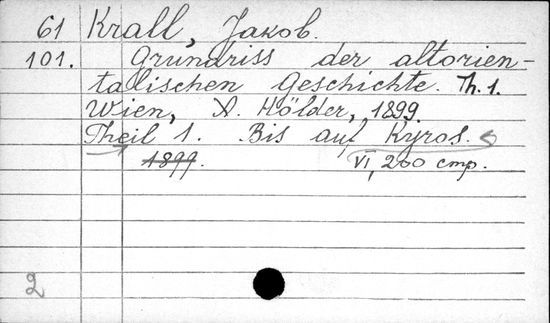 61 Krall, Jakob.
101. Grundriss der altorien-
talischen Geschichte. Th. 1.
Wien, A. Hölder, 1899.
Theil 1. Bis auf Kyros.
1899. VI, 200 стр.
2